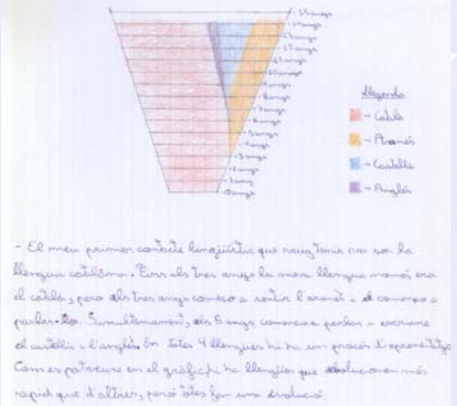 15 anys
14 anys
13 anys
12 anys
11 anys
10 anys
9 anys
8 anys
7 anys
6 anys
5 anys
4 anys
3 anys
2 anys
1 any
0 anys
Llegenda
- Català
- Aranés
- Castellà
- Anglès
- El meu primer contacte lingüístic que vaig tenir va ser la
llengua catalana. Fins als tres anys la meva llengua només era
el català, pero als tres anys començo a sentir l'aranés i començo a
parlar-lo. Simultàniament, als 6 anys començo a parlar i escriure
el castellà i l'anglès. En totes 4 llengues hi ha un procés d'aprenentatge
Com es pot veure en el gràfic hi ha llengües que evolucionen més
rapid que d'altres, però totes fan una evolució.